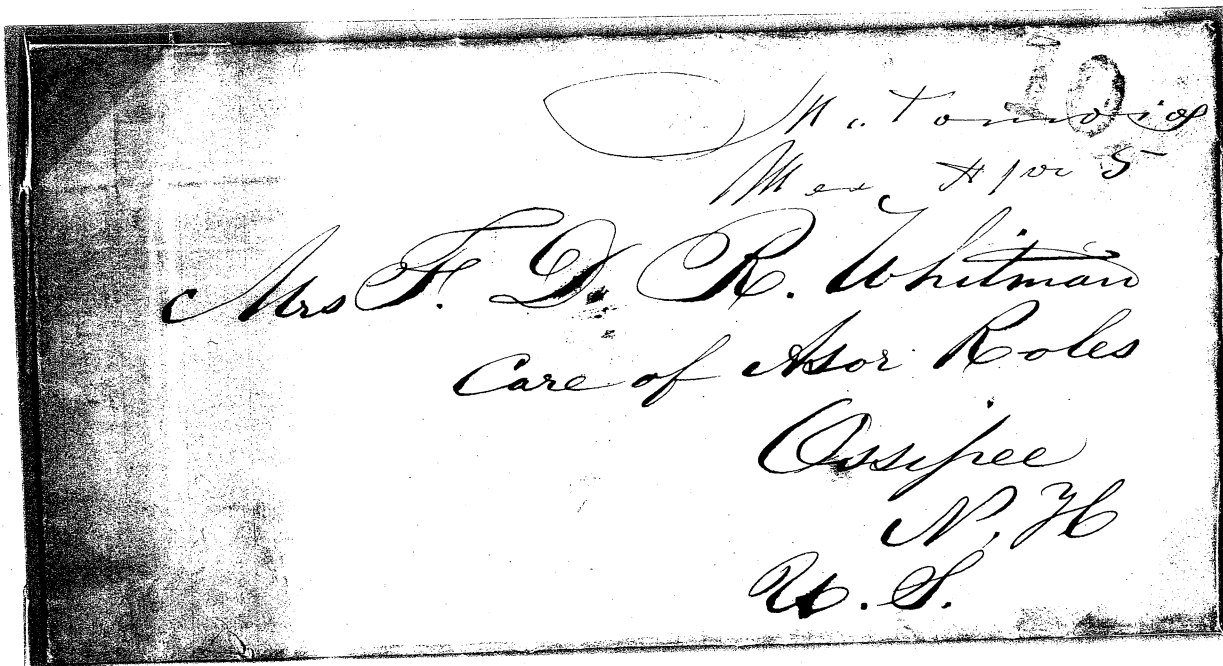 10
Mex. Apr 5
Mrs F. D. R. Whitman
Care of Asor Roles
Ossipee
N. H
U. S.